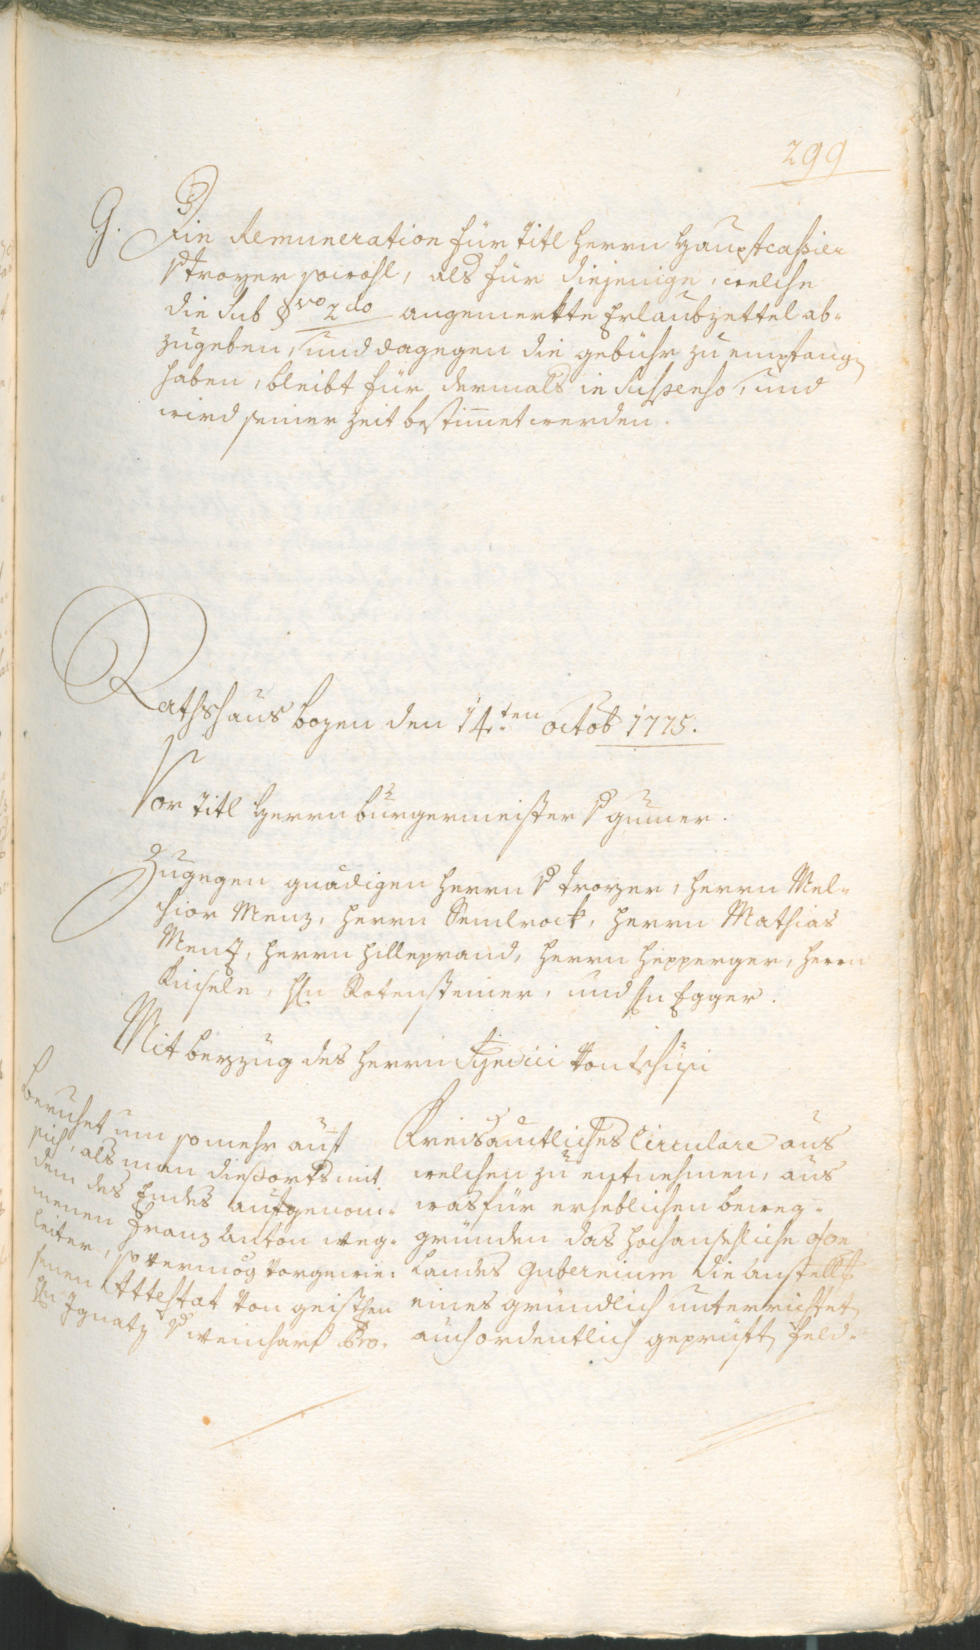 299
9. Ein Remuneration für Titl Herrn Haupt cassier
v Troyer sowohl, als für diejenige, welche
die sub §vo 2do angemerkte Erlaubzettel ab-
zugeben, und dagegen die gebühr zu empfangen
haben, bleibt für dermals in Suspenso, und
wird seiner Zeit bestimet werden.
Rathshaus bozen den 14.ten octob 1775.
Vor Titl Herrn burgermeister v gumer.
Zugegen gnädigen herrn v Troyer, herrn Mel-
chior Menz, herrn Semlrock, herrn Mathias
Menz, herrn hilleprand, herrn hepperger, herrn
Kinsele, hn Rotensteiner, und hn Egger.
Mit beyzug des herrn Syndici von
beruhet um so mehr auf
sich, als man dießorts mit
dem des Endes aufgenom-
menen Franz Anton weg-
leiter, so vermög vorgewie-
senen Attestat von geistlen
hn Ignatz v weinhart Pro-
Kreisämtliches Circulare aus
welchen zu entnehmen, aus
was für erheblichen beweg-
gründen das hochansehliche
Landes Gubernium die anstellung
eines gründlich unterrichtet,
auch ordentlich geprüft, feld-